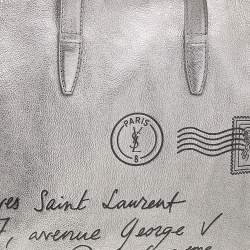 PARIS
YSL
8
res Saint Laurent
7, avenue George V